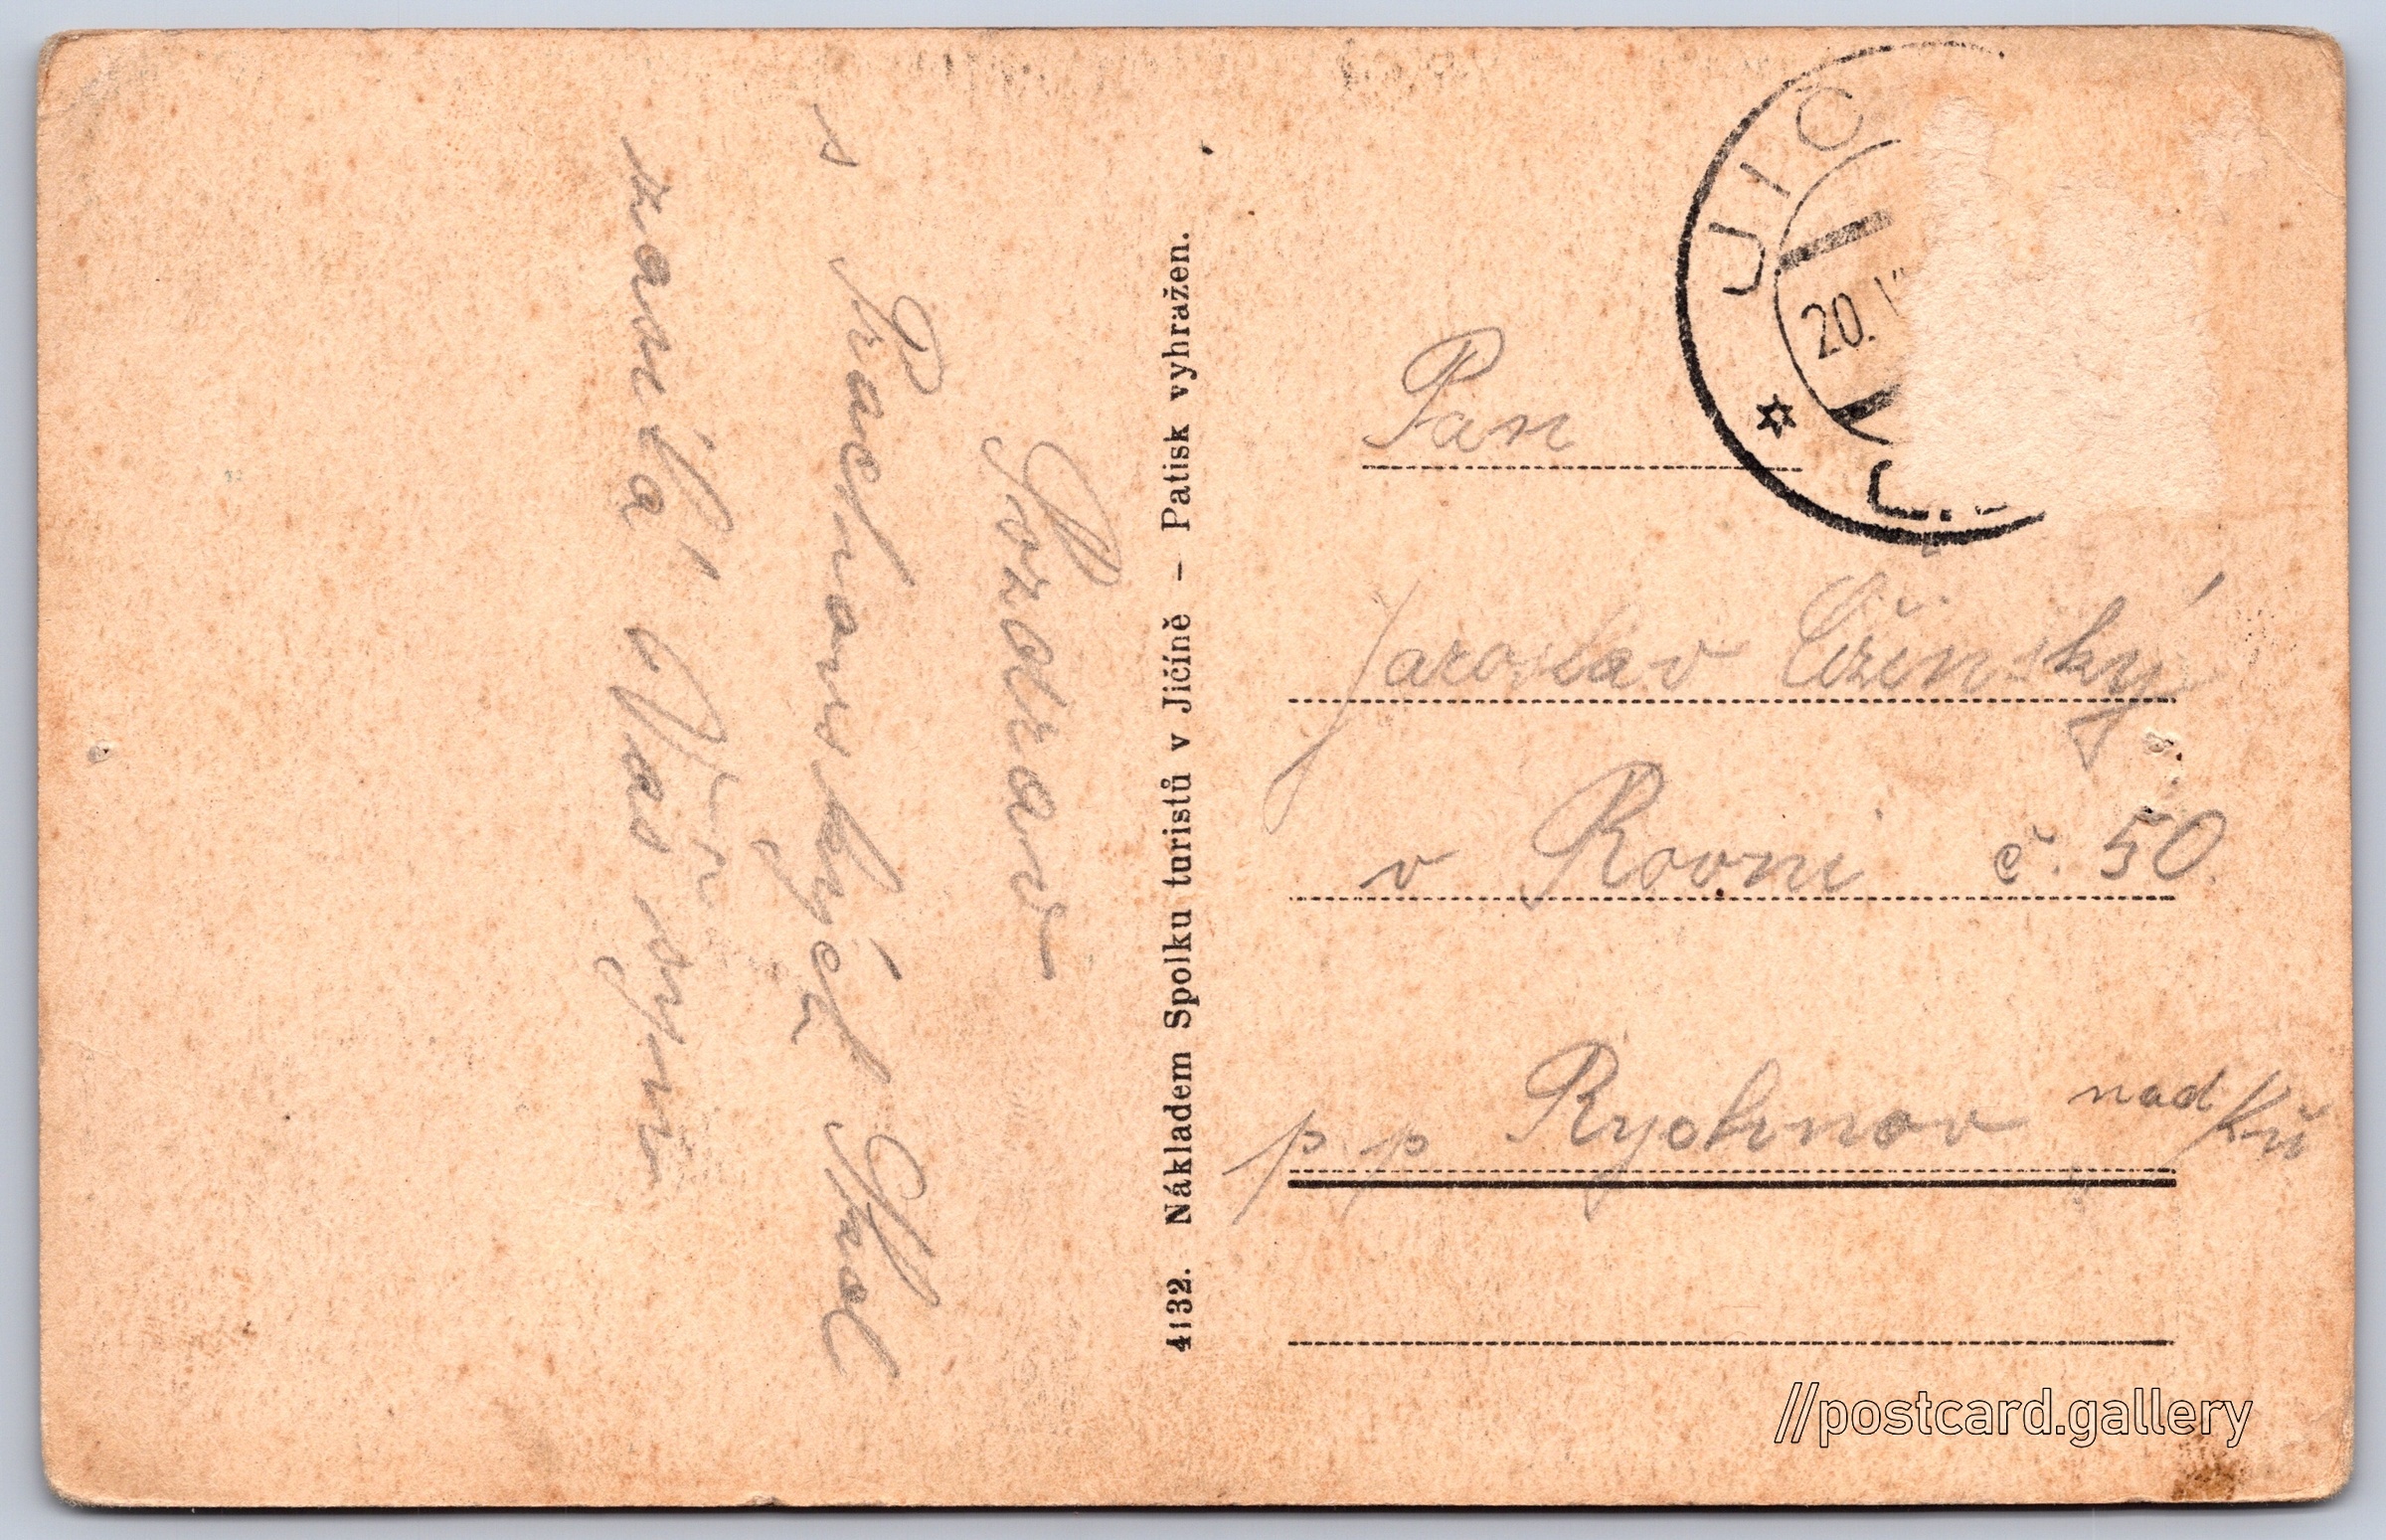 Pozdrav
s Prachovských Skal
zasílá Váš syn
4132. Nákladem Spolku turistů v Jičíně – Patisk vyhražen.
JIC
20. V
Pan
Jaroslav
v Rovni č. 50.
p. p Rychnov nad Kň
//postcard.gallery